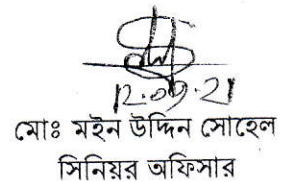 12.09.21
মোঃ মইন উদ্দিন সোহেল
সিনিয়র অফিসার